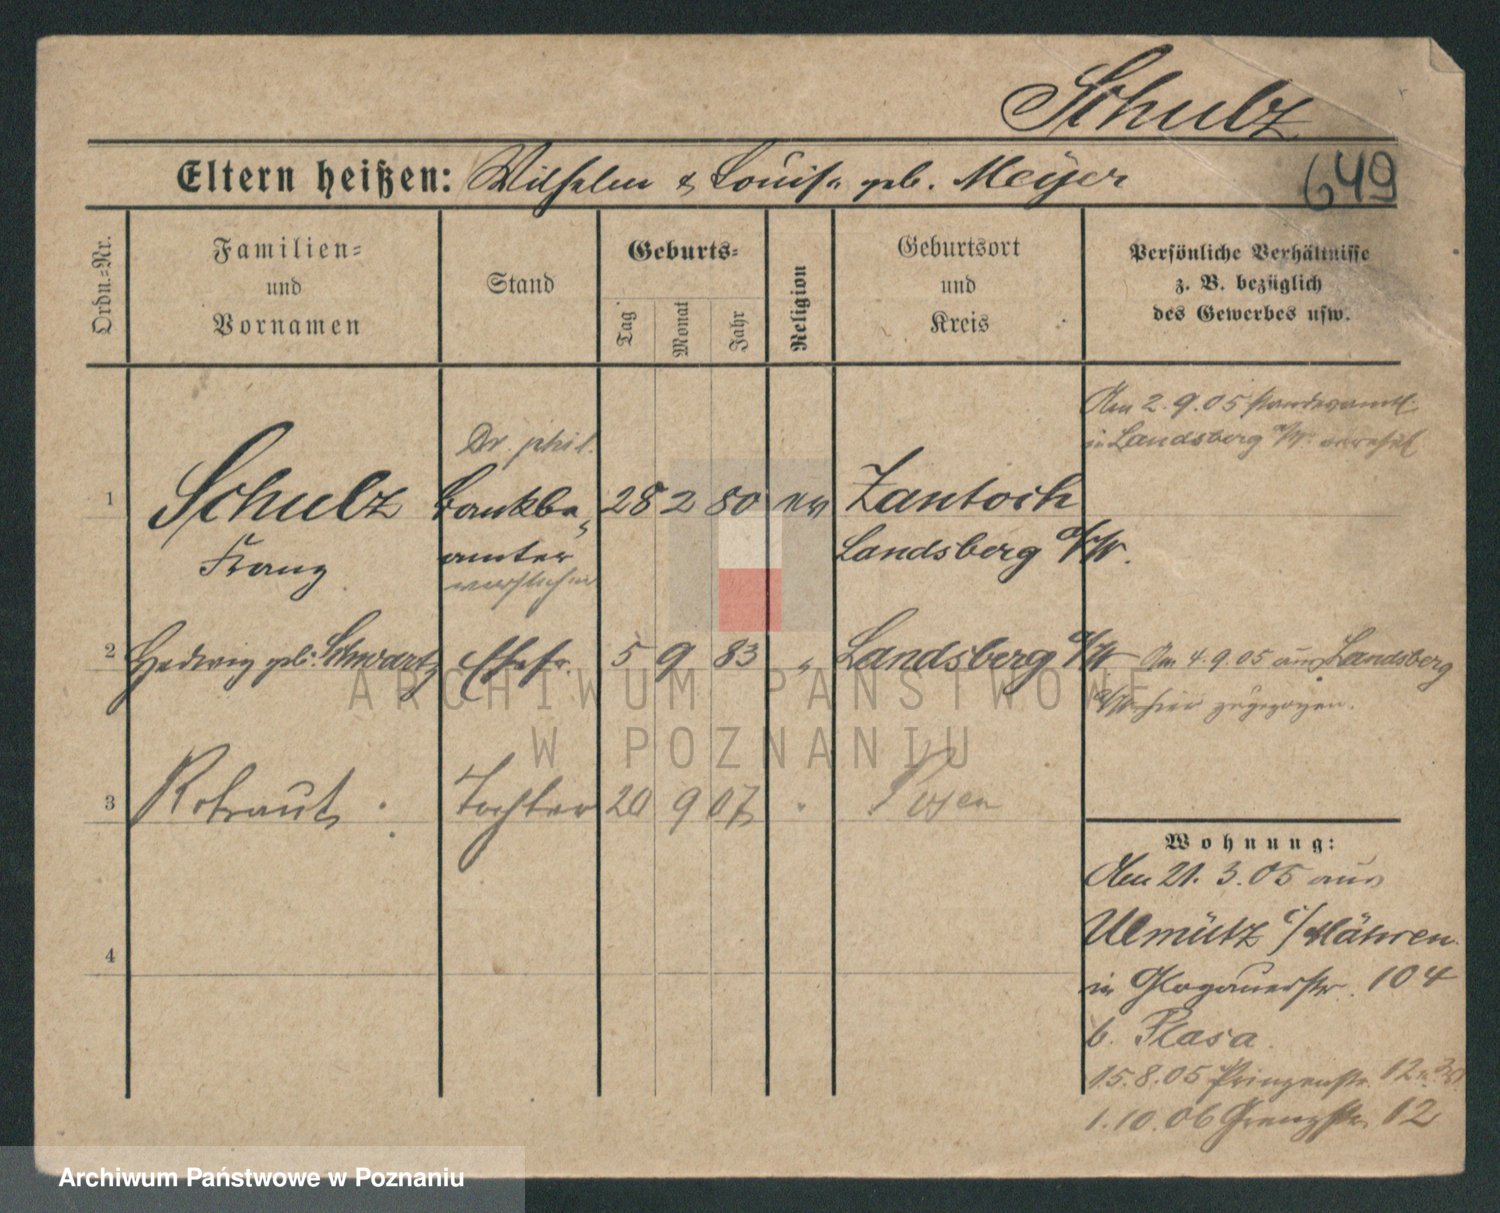 Schulz
Eltern heißen: Wilhelm & Louise geb. Meyer
649
Ordn.-Nr.
Familien-
und
Vornamen
Stand
Geburts-
Tag
Monat
Jahr
Religion
Geburtsort
und
Kreis
Persönliche Verhältnisse
z. B. bezüglich
des Gewerbes usw.
Am 2.9.05 standesamtl.
in Landsberg a/W. verehel.
Dr. phil.
1 Schulz Bankbe- 28 2 80 ev Zantoch
Franz amter Landsberg a/W.
2 Hedwig geb. Schwartz Ehefr. 5 9 83 " Landsberg a/W
Am 4.9.05 aus Landsberg
a/W hier zugezogen.
3 Rotraut Tochter 20 9 07 " Posen
4
Wohnung:
Am 21.3.05 aus
Olmütz i/Mähren
in Glogauerstr. 104
b. Plasa
15.8.05 Prinzenstr. 12
1.10.06 Grenzstr. 12
ARCHIWUM PAŃSTWOWE
W POZNANIU
Archiwum Państwowe w Poznaniu